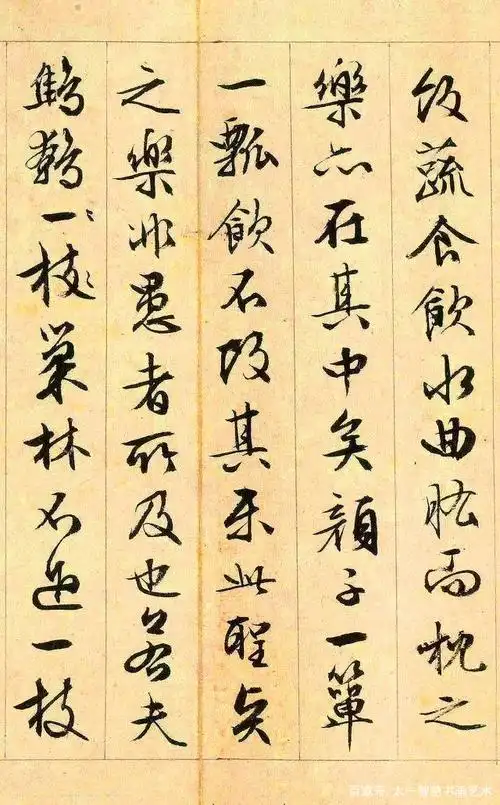 飯蔬食飲水曲肱而枕之
樂亦在其中矣顏子一簞
一瓢飲不改其樂此聖賢
之樂非愚者所及也若夫
鷦鷯一枝巢林不過一枝